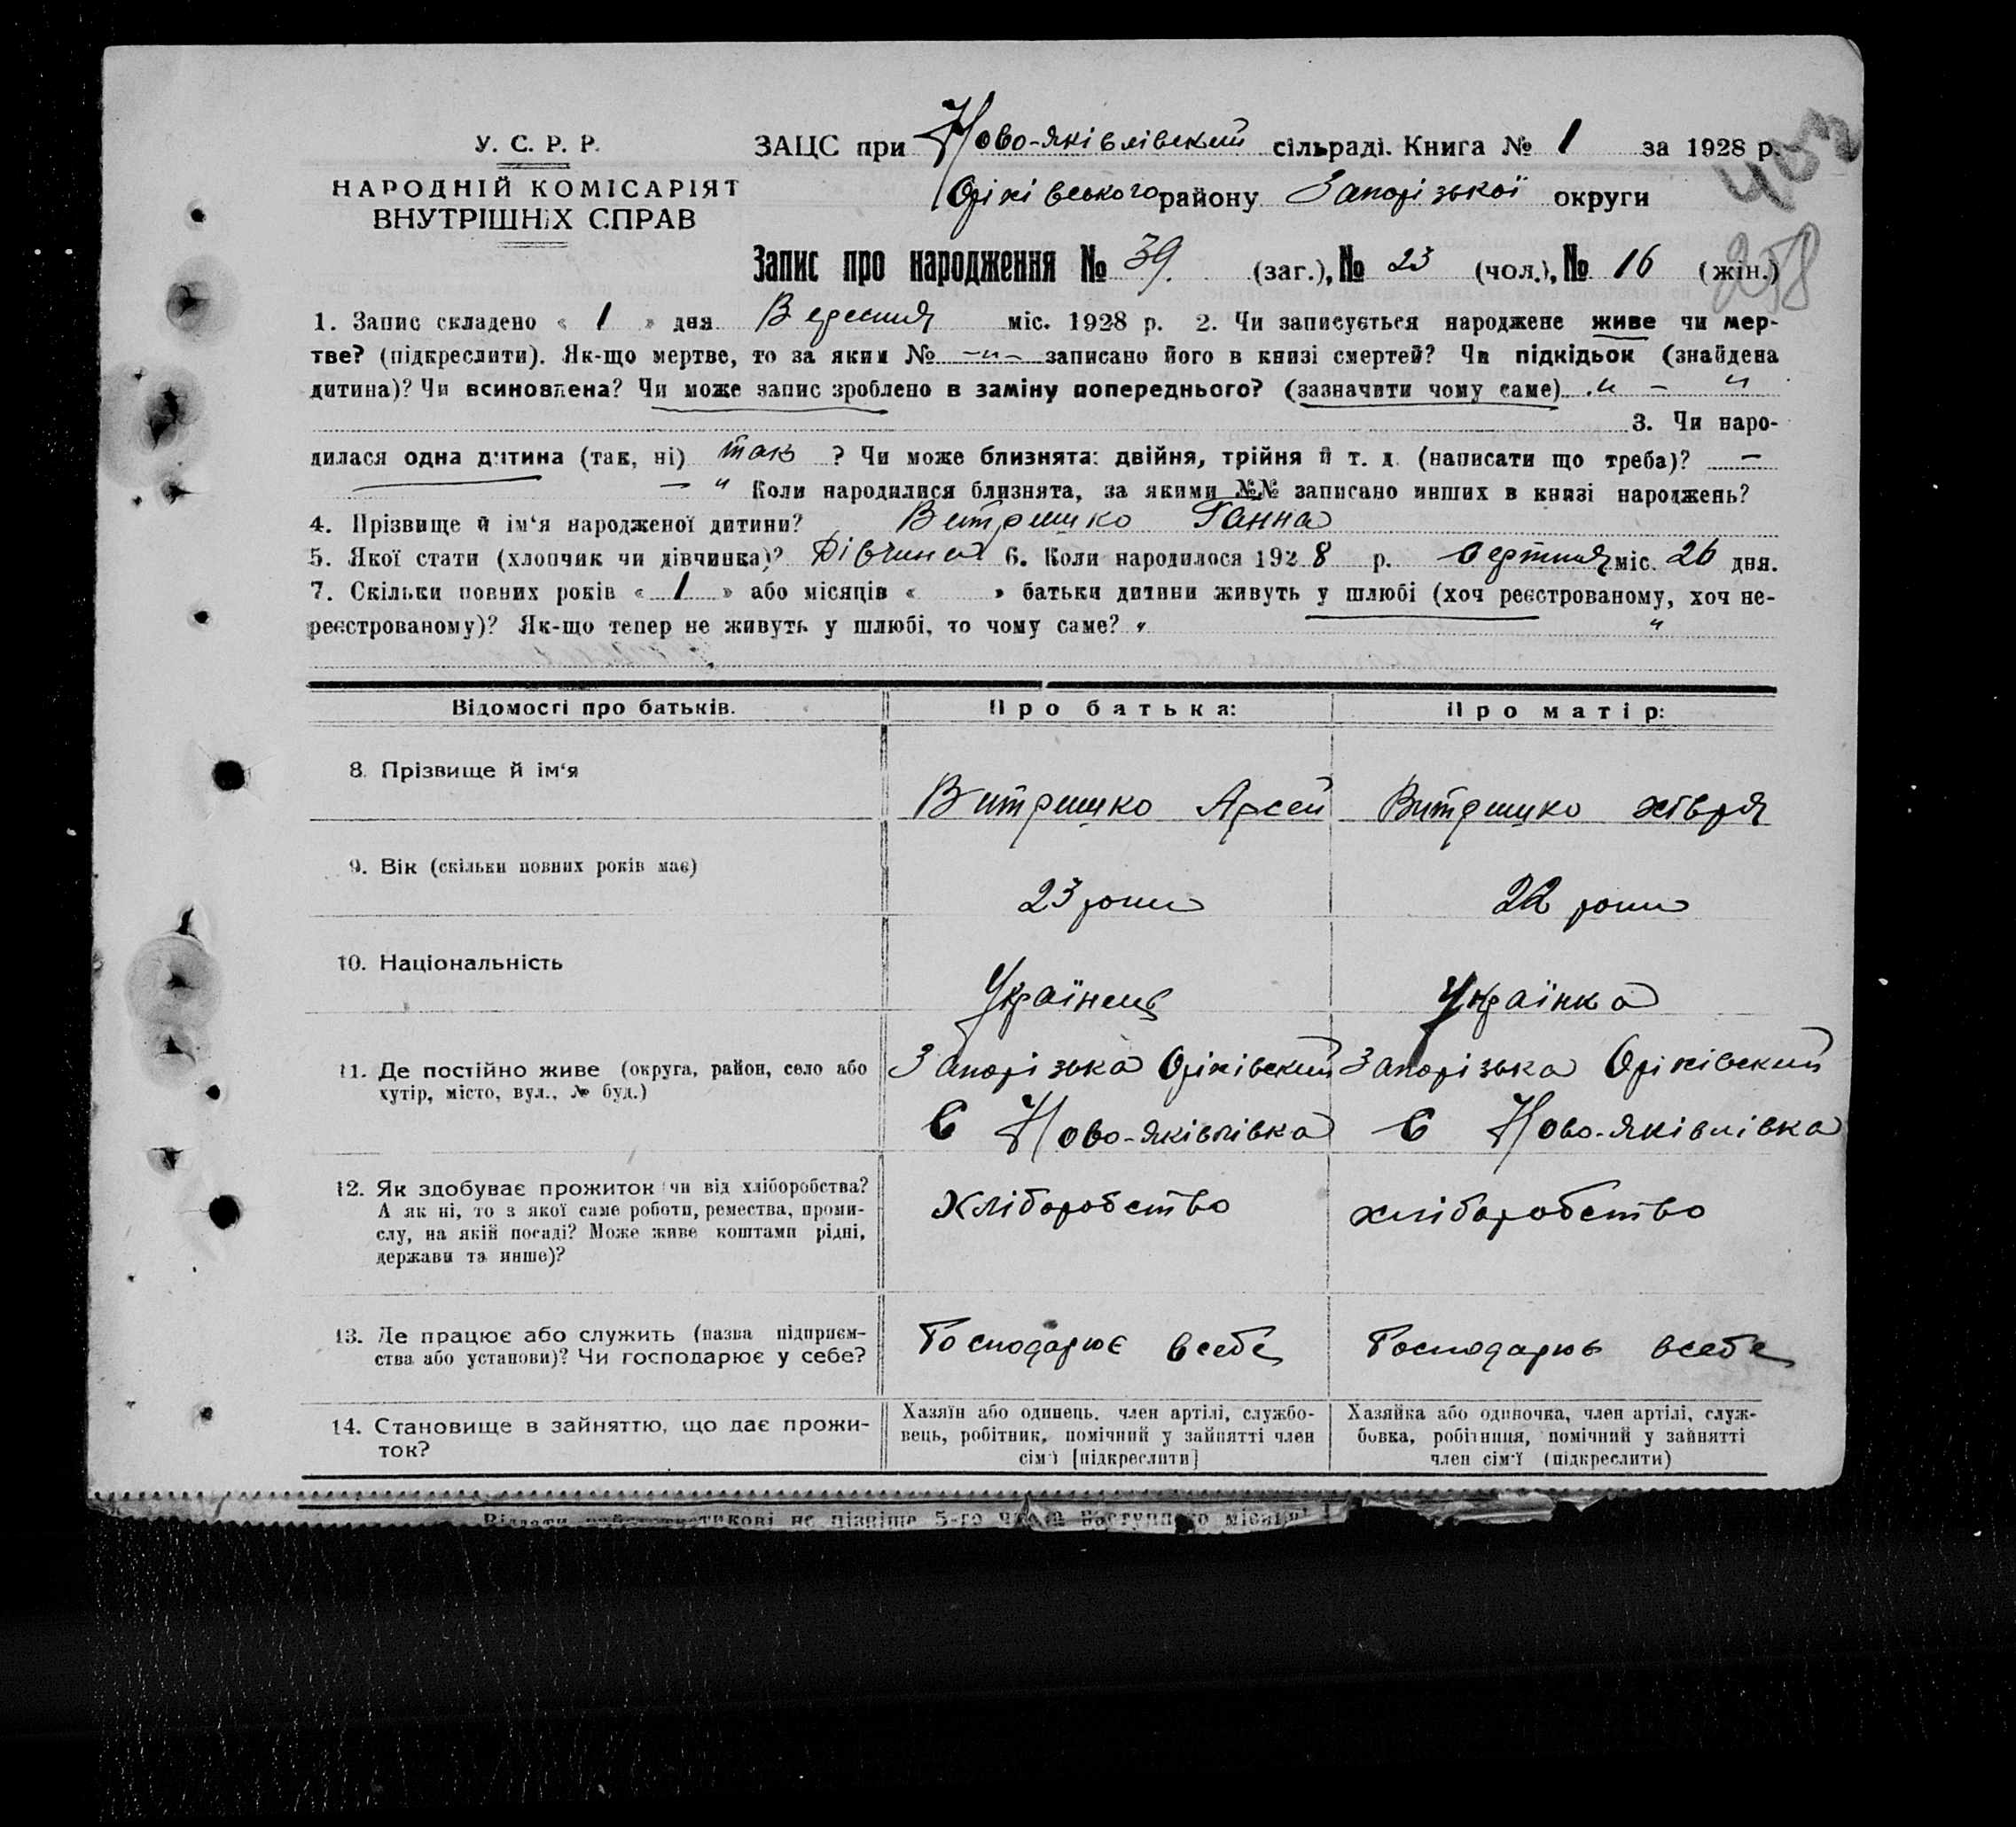 У. С. Р. Р.
НАРОДНІЙ КОМІСАРІЯТ
ВНУТРІШНІХ СПРАВ
ЗАЦС при Ново-яківлівский сільраді. Книга № 1 за 1928 р.
403
Оріхівського району Запорізької округи
Запис про народження № 39. (заг.), № 23 (чол.), № 16 (жін.)
258
1. Запис складено « 1 » дня Вересния міс. 1928 р. 2. Чи записується народжене живе чи мер-
тве? (підкреслити). Як-що мертве, то за яким № -"- записано його в книзі смертей? Чи підкідьок (знайдена
дитина)? Чи всиновлена? Чи може запис зроблено в заміну попереднього? (зазначити чому саме) " - "
3. Чи наро-
дилася одна дитина (так, ні) так ? Чи може близнята: двійня, трійня й т. д. (написати що треба)? -
- " Коли народилися близнята, за якими №№ записано инших в книзі народжень?
4. Прізвище й ім'я народженої дитини? Витришко Ганна
5. Якої стати (хлопчик чи дівчинка)? Дівчина 6. Коли народилося 1928 р. міс. 26 дня.
7. Скільки повних років « 1 » або місяців « » батьки дитини живуть у шлюбі (хоч реєстрованому, хоч не-
реєстрованому)? Як-що тепер не живуть у шлюбі, то чому саме? " "
Відомості про батьків. Про батька: Про матір:
8. Прізвище й ім'я
Витришко Арсей Витришко Хівря
9. Вік (скільки повних років має)
23 роки 22 роки
10. Національність
Українець Українка
11. Де постійно живе (округа, район, село або
хутір, місто, вул., № буд.)
Запорізька Оріхівский Запорізька Оріхівский
С Ново-яківлівка С Ново-яківлівка
12. Як здобуває прожиток чи від хліборобства?
А як ні, то з якої саме роботи, ремества, проми-
слу, на якій посаді? Може живе коштами рідні,
держави та инше)?
Хліборобство хліборобство
13. Де працює або служить (назва підприєм-
ства або установи)? Чи господарює у себе?
Господарює всебе Господарює всебе
14. Становище в зайняттю, що дає прожи-
ток?
Хазяїн або одинець, член артілі, службо-
вець, робітник, помічний у зайнятті член
сім'ї [підкреслити]
Хазяйка або одиночка, член артілі, служ-
бовка, робітниця, помічний у зайнятті
член сім'ї (підкреслити)
не пізніше 5-го числа наступного місяця!